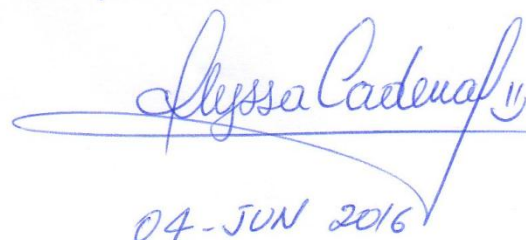 Alyssa Cadena
04-JUN 2016